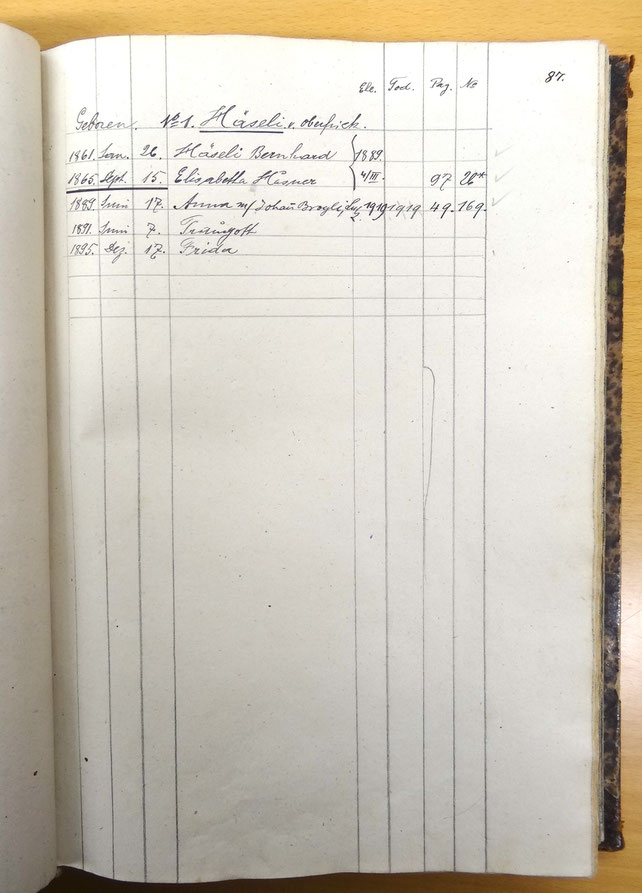 87.
Ehe. Tod. Pag. No
Geboren. No 1. Häseli v. Oberfrick.
1861. Jan. 26. Häseli Bernhard 1889.
1865. Sept. 15. Elisabetha Husner 4/III. 97 26*
1889. Juni 17. Anna m/ Johan 1919. 1919. 49. 169.
1891. Juni 7. Traugott
1895. Dez. 17. Frida